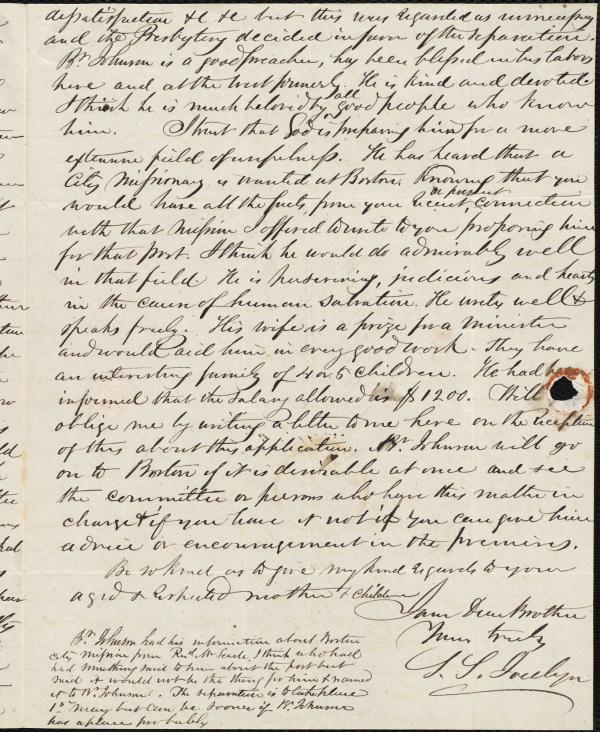 dissatisfaction &c &c but this was regarded as unnecessary
and the Presbytery decided in favor of the separation.
Br. Johnson is a good preacher, has been blessed in his labors
here and at the west formerly. He is kind and devoted.
I think he is much beloved by all good people who know
him. I trust that God is preparing him for a more
extensive field of usefulness. He has heard that a
City Missionary is wanted at Boston. Knowing that you
would have all the facts, from your recent or present connection
with that Mission I offered to write to you proposing him
for that post. I think he would do admirably well
in that field He is persevering, judicious and hearty
in the cause of human salvation. He writes well &
speaks freely. His wife is a prize for a minister
and would aid him in every good work. They have
an interesting family of 4 or 5 children. He had
informed that the salary allowed is $1200. Will
oblige me by writing a letter to me here on the reception
of this about this application. Br. Johnson will go
on to Boston if it is desirable at once and see
the committee or persons who have this matter in
charge & if you have it not if you can give him
advice or encouragement in the premises.
Be so kind as to give my kind regards to your
aged & respected mother & children
I am Dear Brother
Yours truly
S. S. Jocelyn
Br. Johnson had his information about Boston
City Mission from Rev. Mr. Searle, I think who had
had something said to him about the post but
said it would not be the thing for him & named
it to Br. Johnson. The separation is to take place
1st May but can be sooner if Br. Johnson
has a place probably